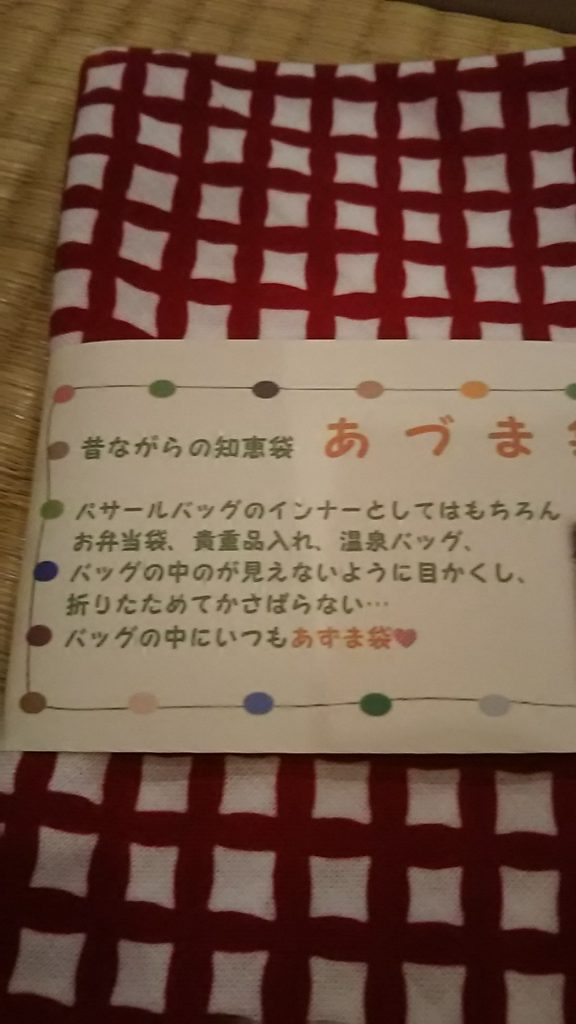 昔ながらの知恵袋 あづま
バサールバッグのインナーとしてはもちろん
お弁当袋、貴重品入れ、温泉バッグ、
バッグの中のが見えないように目かくし、
折りたためてかさばらない…
バッグの中にいつもあずま袋♥